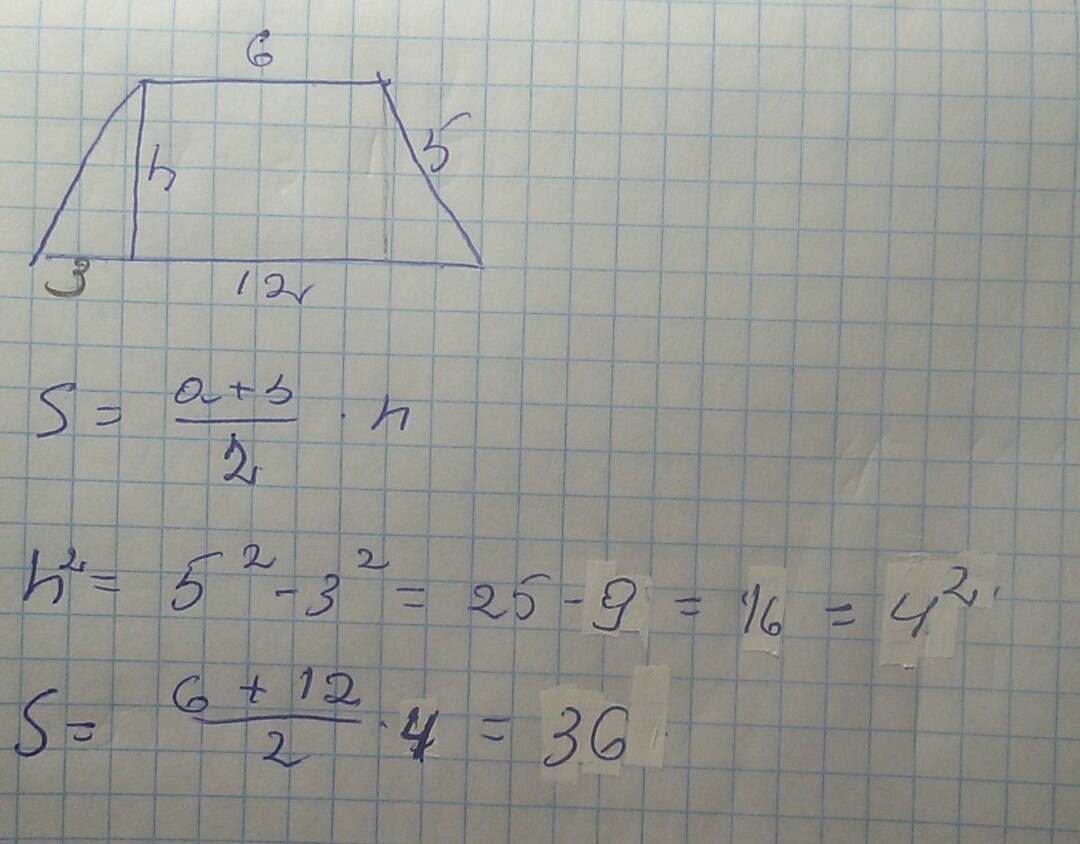 6
h 5
3 12
S = (a + b)/2 · h
h² = 5² - 3² = 25 - 9 = 16 = 4²
S = (6 + 12)/2 · 4 = 36